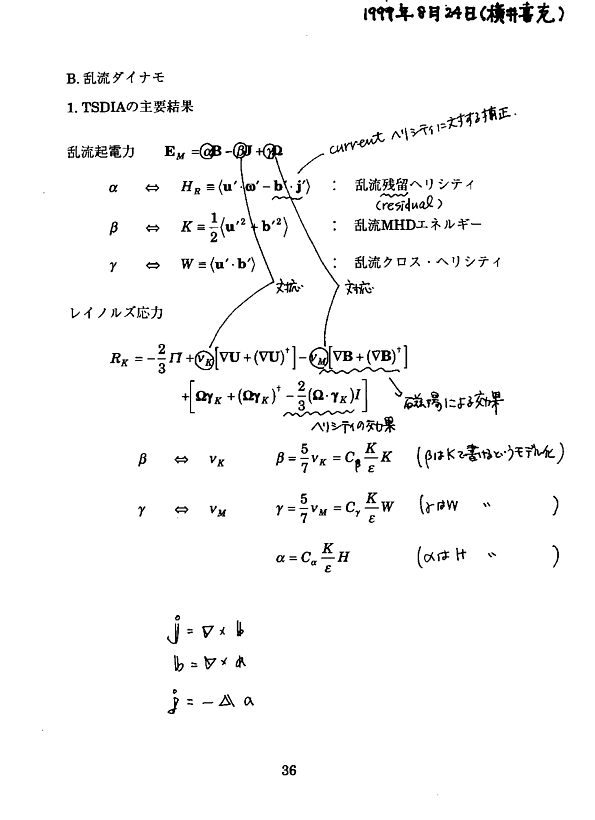 1999年8月24日(横井喜充)
B. 乱流ダイナモ
1. TSDIAの主要結果
current ヘリシティに対する補正.
乱流起電力 E_M = αB − βJ + γΩ
α ⇔ H_R ≡ ⟨u′·ω′ − b′·j′⟩ : 乱流残留ヘリシティ
(residual)
β ⇔ K ≡ 1/2⟨u′² + b′²⟩ : 乱流MHDエネルギー
γ ⇔ W ≡ ⟨u′·b′⟩ : 乱流クロス・ヘリシティ
対応 対応
レイノルズ応力
R_K = −2/3 Π + ν_K[∇U + (∇U)†] − ν_M[∇B + (∇B)†]
+[Ωγ_K + (Ωγ_K)† − 2/3(Ω·γ_K)I] 磁場による効果
ヘリシティの効果
β ⇔ ν_K β = 5/7 ν_K = C_β K/ε K (βはKで書けるというモデル化)
γ ⇔ ν_M γ = 5/7 ν_M = C_γ K/ε W (γはW 〃 )
α = C_α K/ε H (αはH 〃 )
j = ∇ × b
b = ∇ × a
j = − Δ a
36